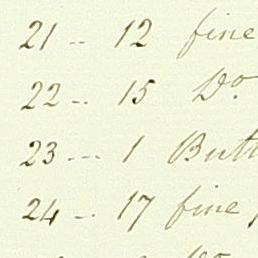 21 -- 12 fine
22 -- 15 Do
23 --- 1 Butt
24 -- 17 fine